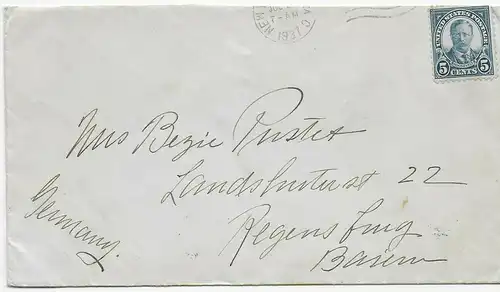 7 - AM
1937
UNITED STATES POSTAGE
5 CENTS 5
Miss Bezie Pustet
Landshuterst 22
Regensburg
Baiern
Germany.